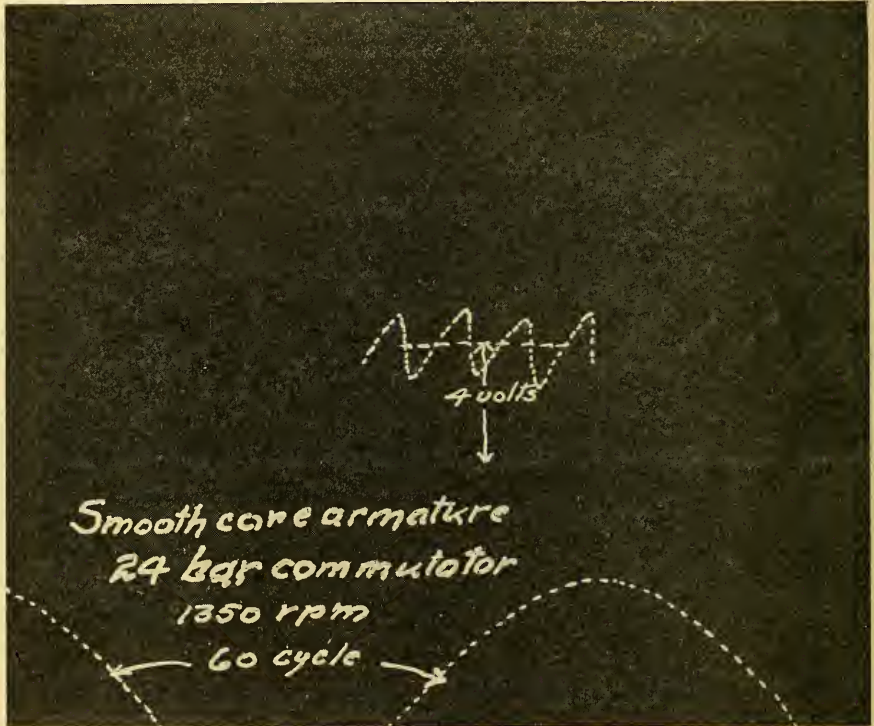 4 volts
Smooth core armature
24 bar commutator
1350 rpm
60 cycle